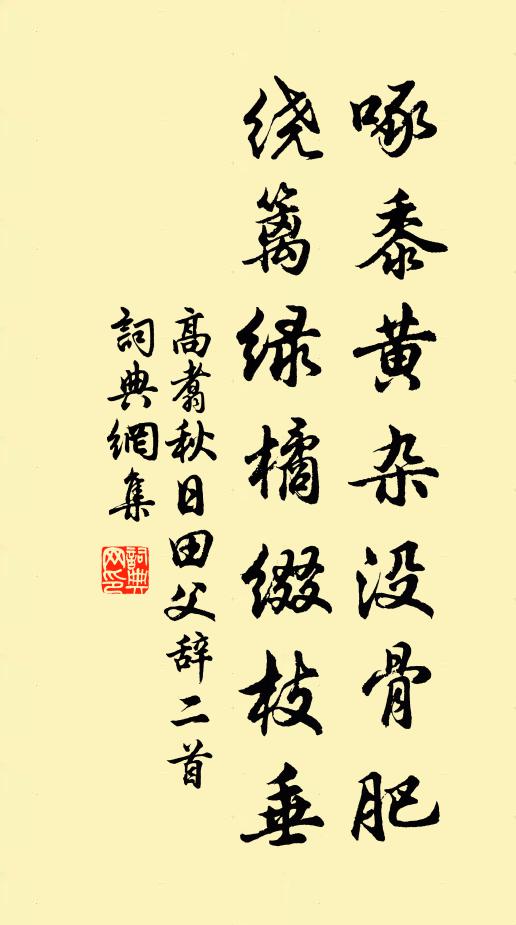 啄黍黄杂没骨肥
绕篱绿橘缀枝垂
高翥秋日田父辞二首
詞典網集
詞典
网印